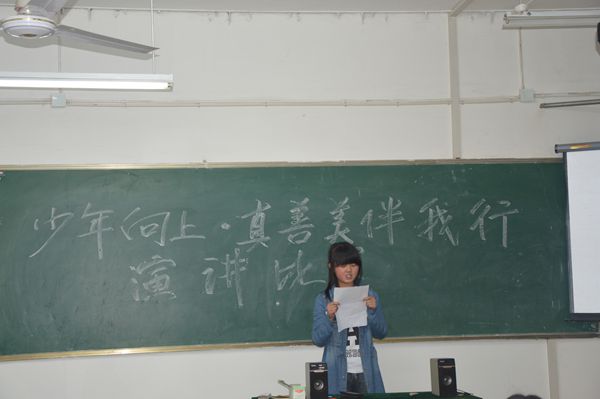 少年向上·真善美伴我行
演讲比